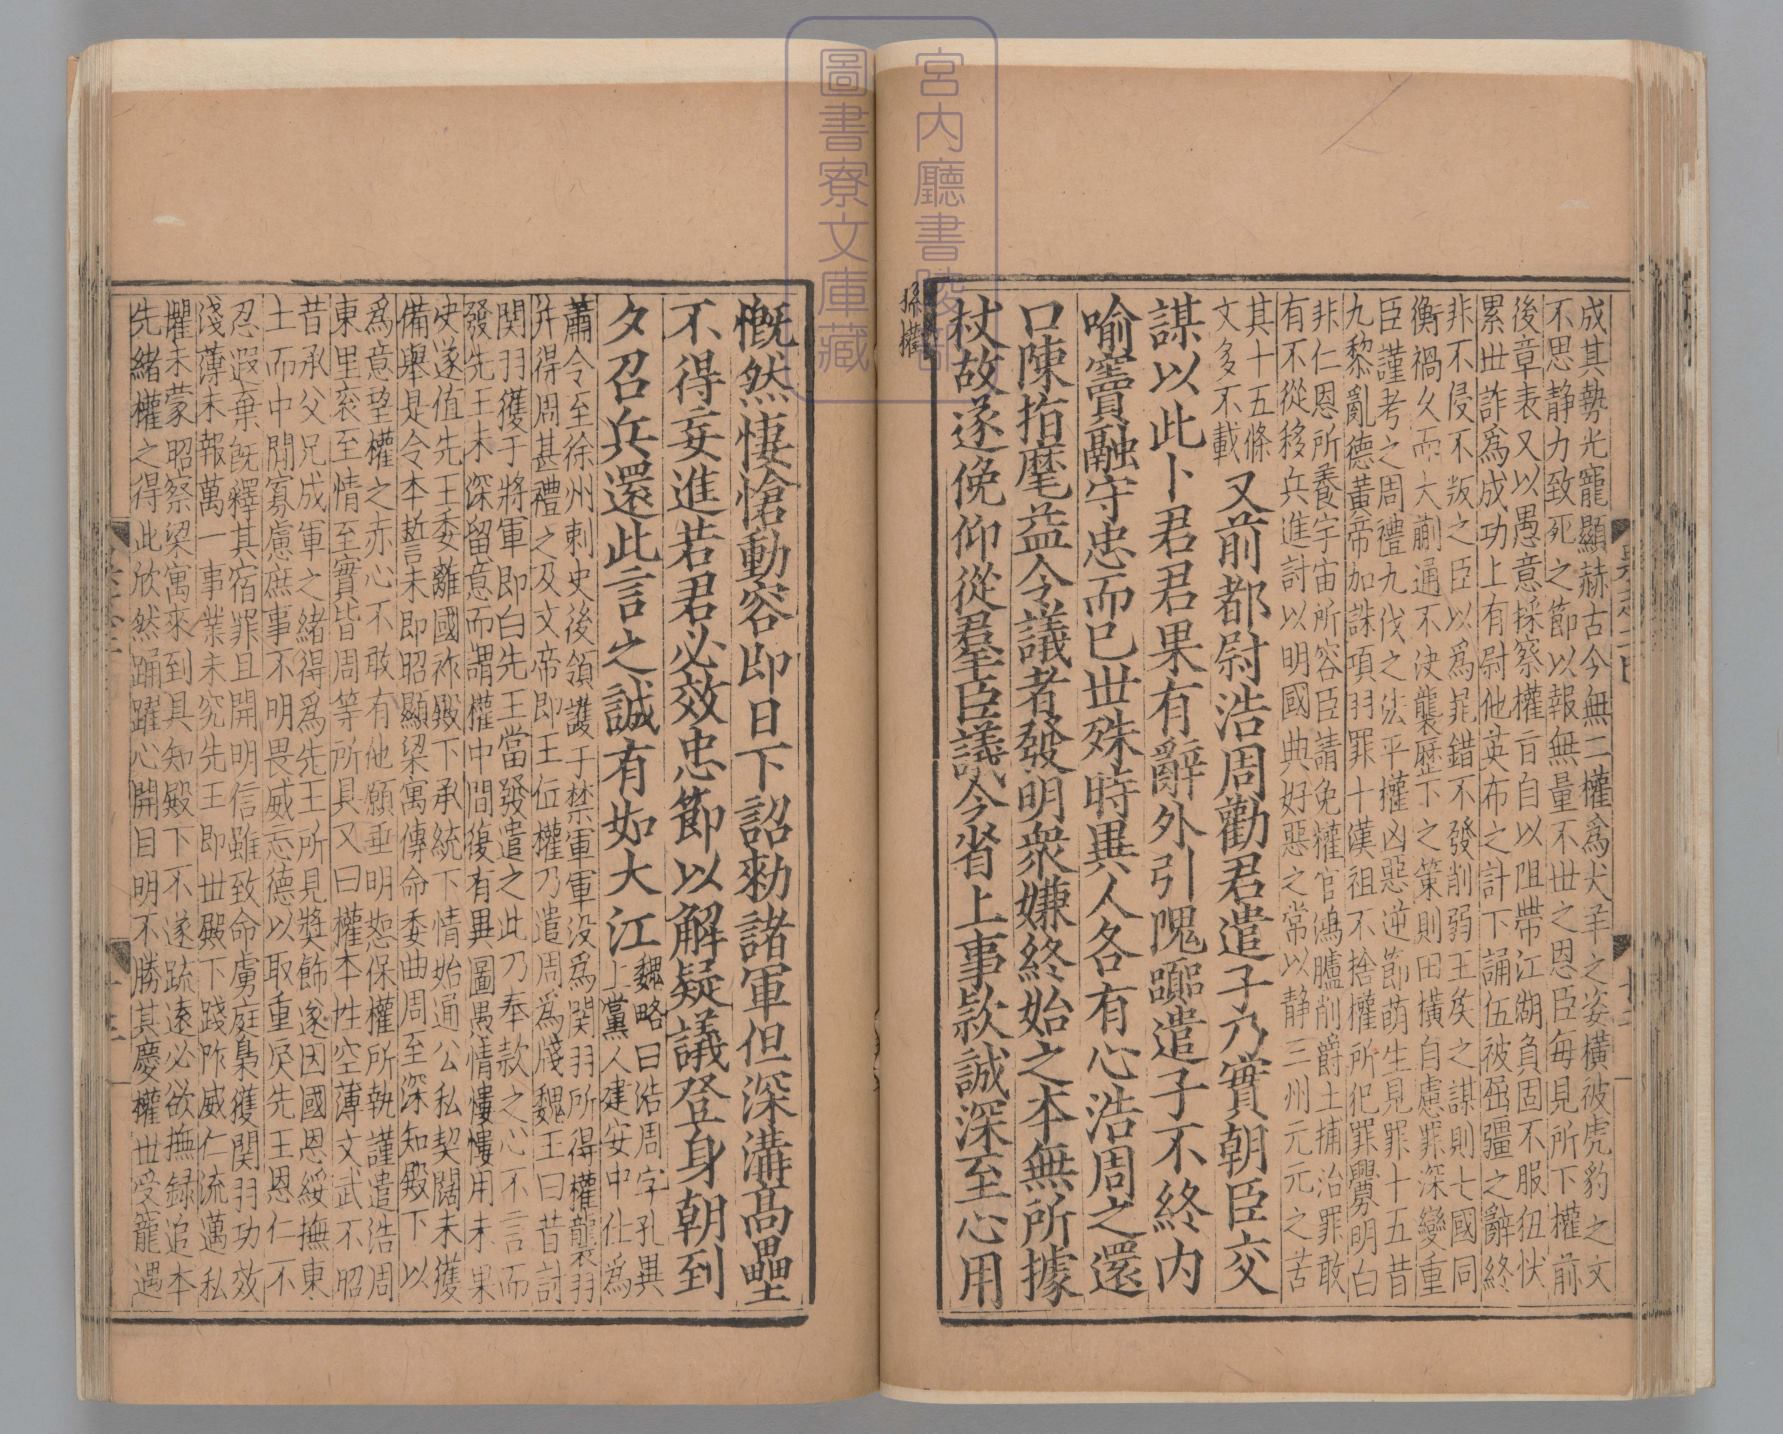 成其勢光寵顯赫古今無二權爲犬羊之姿橫被虎豹之文
不思静力致死之節以報無量不丗之恩臣每見所下權前
後章表又以愚意採察權㫖自以阻帶江湖負固不服狃忕
累丗詐爲成功上有尉他英布之計下誦伍被屈彊之辭終
非不侵不叛之臣以爲鼂錯不發削弱王矦之謀則七國同
衡禍久而大蒯通不決襲歷下之策則田橫自慮罪深變重
臣謹考之周禮九伐之法平權凶惡逆節萌生見罪十五昔
九黎亂德黃帝加誅項羽罪十漢祖不捨權所犯罪釁明白
非仁恩所養宇宙所容臣請免權官鴻臚削爵土捕治罪敢
有不從移兵進討以明國典好惡之常以静三州元元之苦
其十五條
文多不載
又前都尉浩周勸君遣子乃實朝臣交
謀以此卜君君果有辭外引隗囂遣子不終内
喻竇融守忠而已丗殊時異人各有心浩周之還
口陳指麾益令議者發明衆嫌終始之本無所據
杖故遂俛仰從羣臣議今省上事款誠深至心用
孫權
慨然悽愴動容即日下詔勑諸軍但深溝髙壘
不得妄進若君必效忠節以解疑議登身朝到
夕召兵還此言之誠有如大江
魏略曰浩周字孔異
上黨人建安中仕爲
蕭令至徐州刺史後領護于禁軍軍没爲関羽所得權襲羽
并得周甚禮之及文帝即王位權乃遣周爲牋魏王曰昔討
関羽獲于將軍即白先王當發遣之此乃奉款之心不言而
發先王未深留意而謂權中間復有異圖愚情慺慺用未果
決遂值先王委離國祚殿下承統下情始通公私契闊未獲
備舉是令本誓未即昭顯梁寓傳命委曲周至深知殿下以
爲意望權之赤心不敢有他願垂明恕保權所執謹遣浩周
東里衮至情至實皆周等所具又曰權本性空薄文武不昭
昔承父兄成軍之緒得爲先王所見奬飾遂因國恩綏撫東
土而中間寡慮庶事不明畏威忘德以取重戾先王恩仁不
忍遐棄旣釋其宿罪且開明信雖致命虜庭梟獲関羽功效
淺薄未報萬一事業未究先王即丗殿下踐阼威仁流邁私
懼未蒙昭察梁寓來到具知殿下不遂疏遠必欲撫録追本
先緒權之得此欣然踊躍心開目明不勝其慶權丗受寵遇
宮内廳書陵部
圖書寮文庫藏